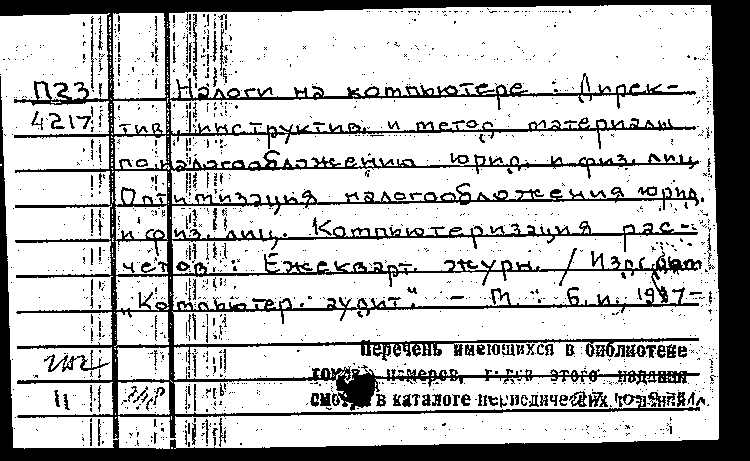 П23 Налоги на компьютере : Дирек-
4217 тив., инструктив. и метод. материалы
по налогообложению юрид. и физ. лиц
Оптимизация налогообложения юрид.
и физ. лиц. Компьютеризация рас-
четов. : Ежекварт. журн. /
"Компьютер. аудит". - М. : Б. и., 1997-
Перечень имеющихся в библиотеке
томов, номеров, годов этого издания
II 348 смотри в каталоге периодических